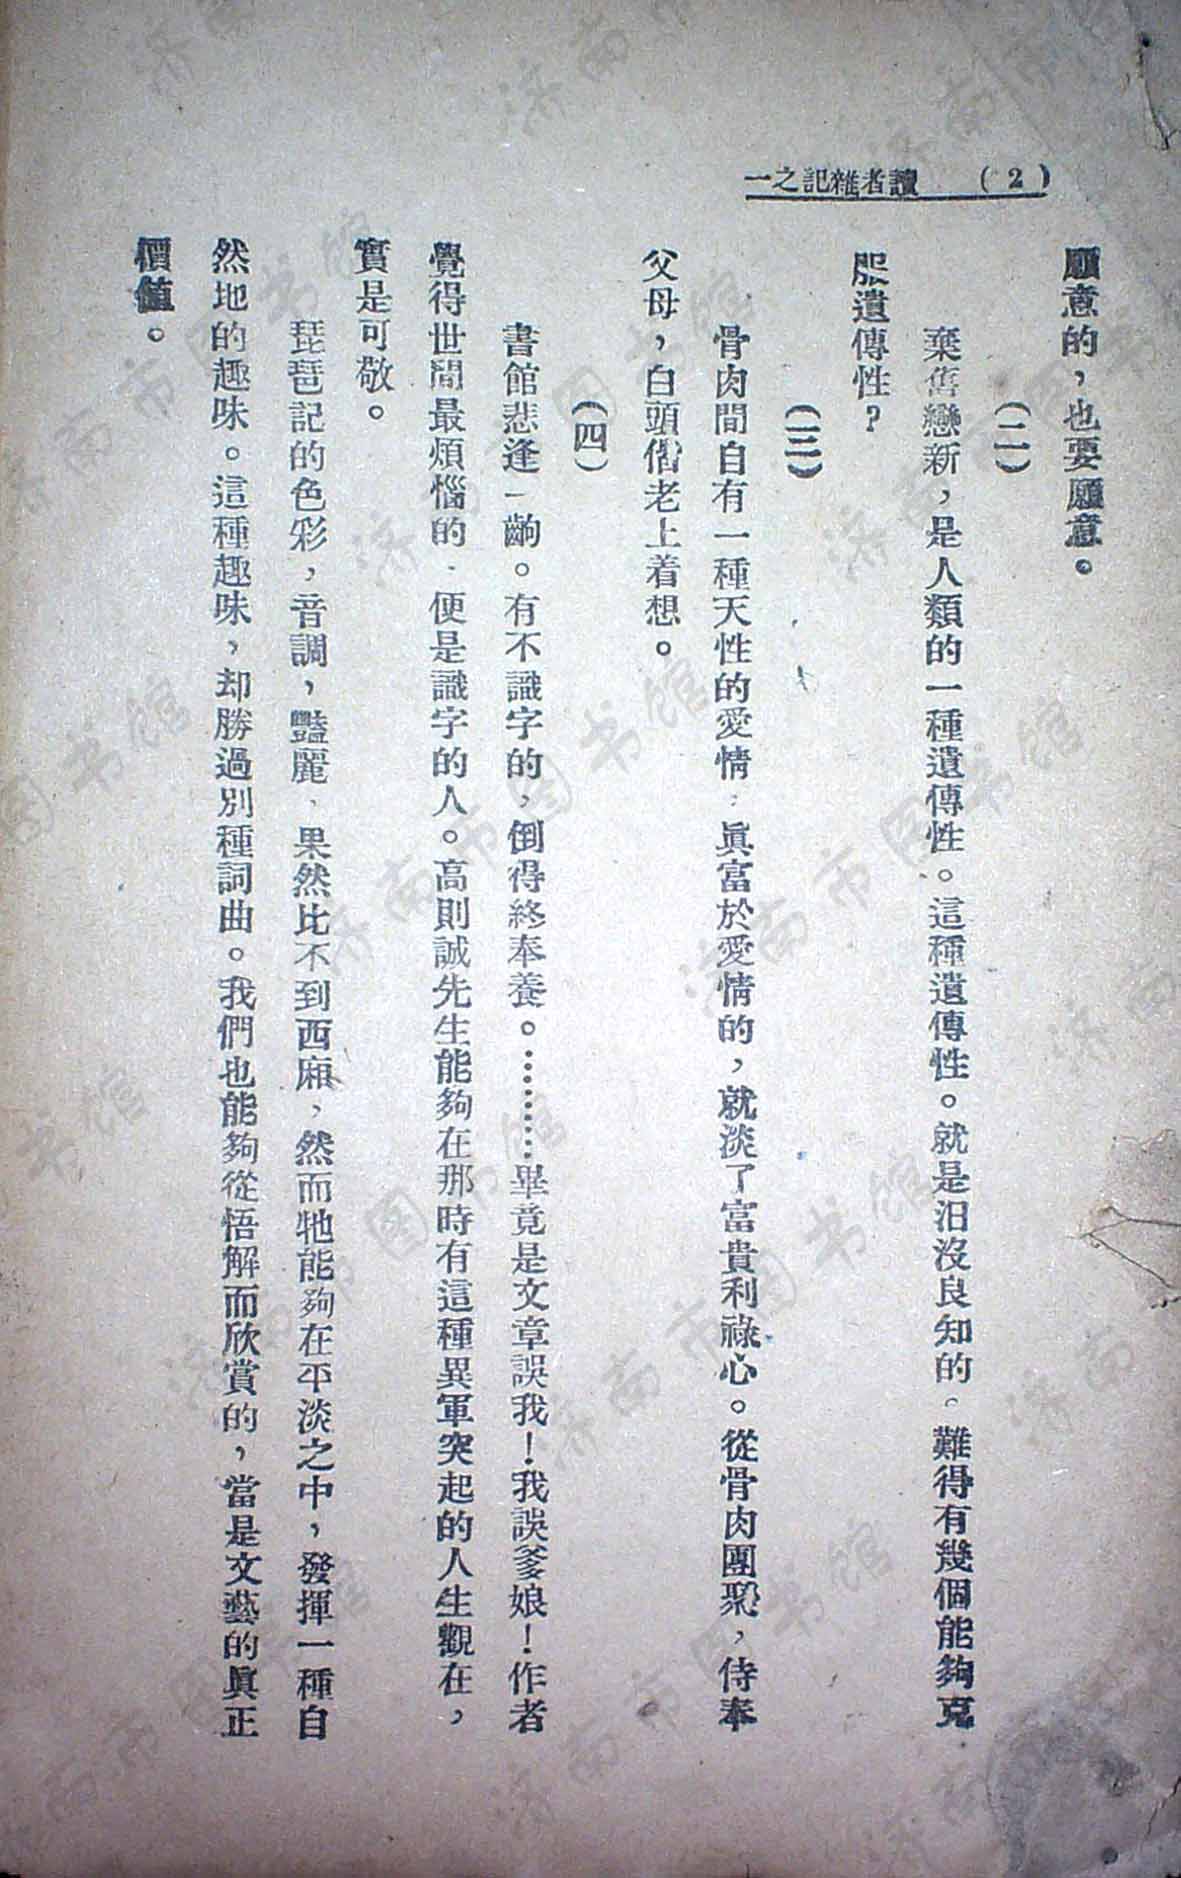 讀者雜記之一 (2)
願意的，也要願意。
(二)
棄舊戀新，是人類的一種遺傳性。這種遺傳性。就是汨沒良知的。難得有幾個能夠克
服遺傳性？
(三)
骨肉間自有一種天性的愛情，眞富於愛情的，就淡了富貴利祿心。從骨肉團聚，侍奉
父母，白頭偕老上着想。
(四)
書館悲逢一齣。有不識字的，倒得終奉養。………畢竟是文章誤我！我誤爹娘！作者
覺得世間最煩惱的．便是識字的人。高則誠先生能夠在那時有這種異軍突起的人生觀在，
實是可敬。
琵琶記的色彩，音調，豔麗，果然比不到西廂，然而牠能夠在平淡之中，發揮一種自
然地的趣味。這種趣味，却勝過別種詞曲。我們也能夠從悟解而欣賞的，當是文藝的眞正
價値。
济南市图书馆